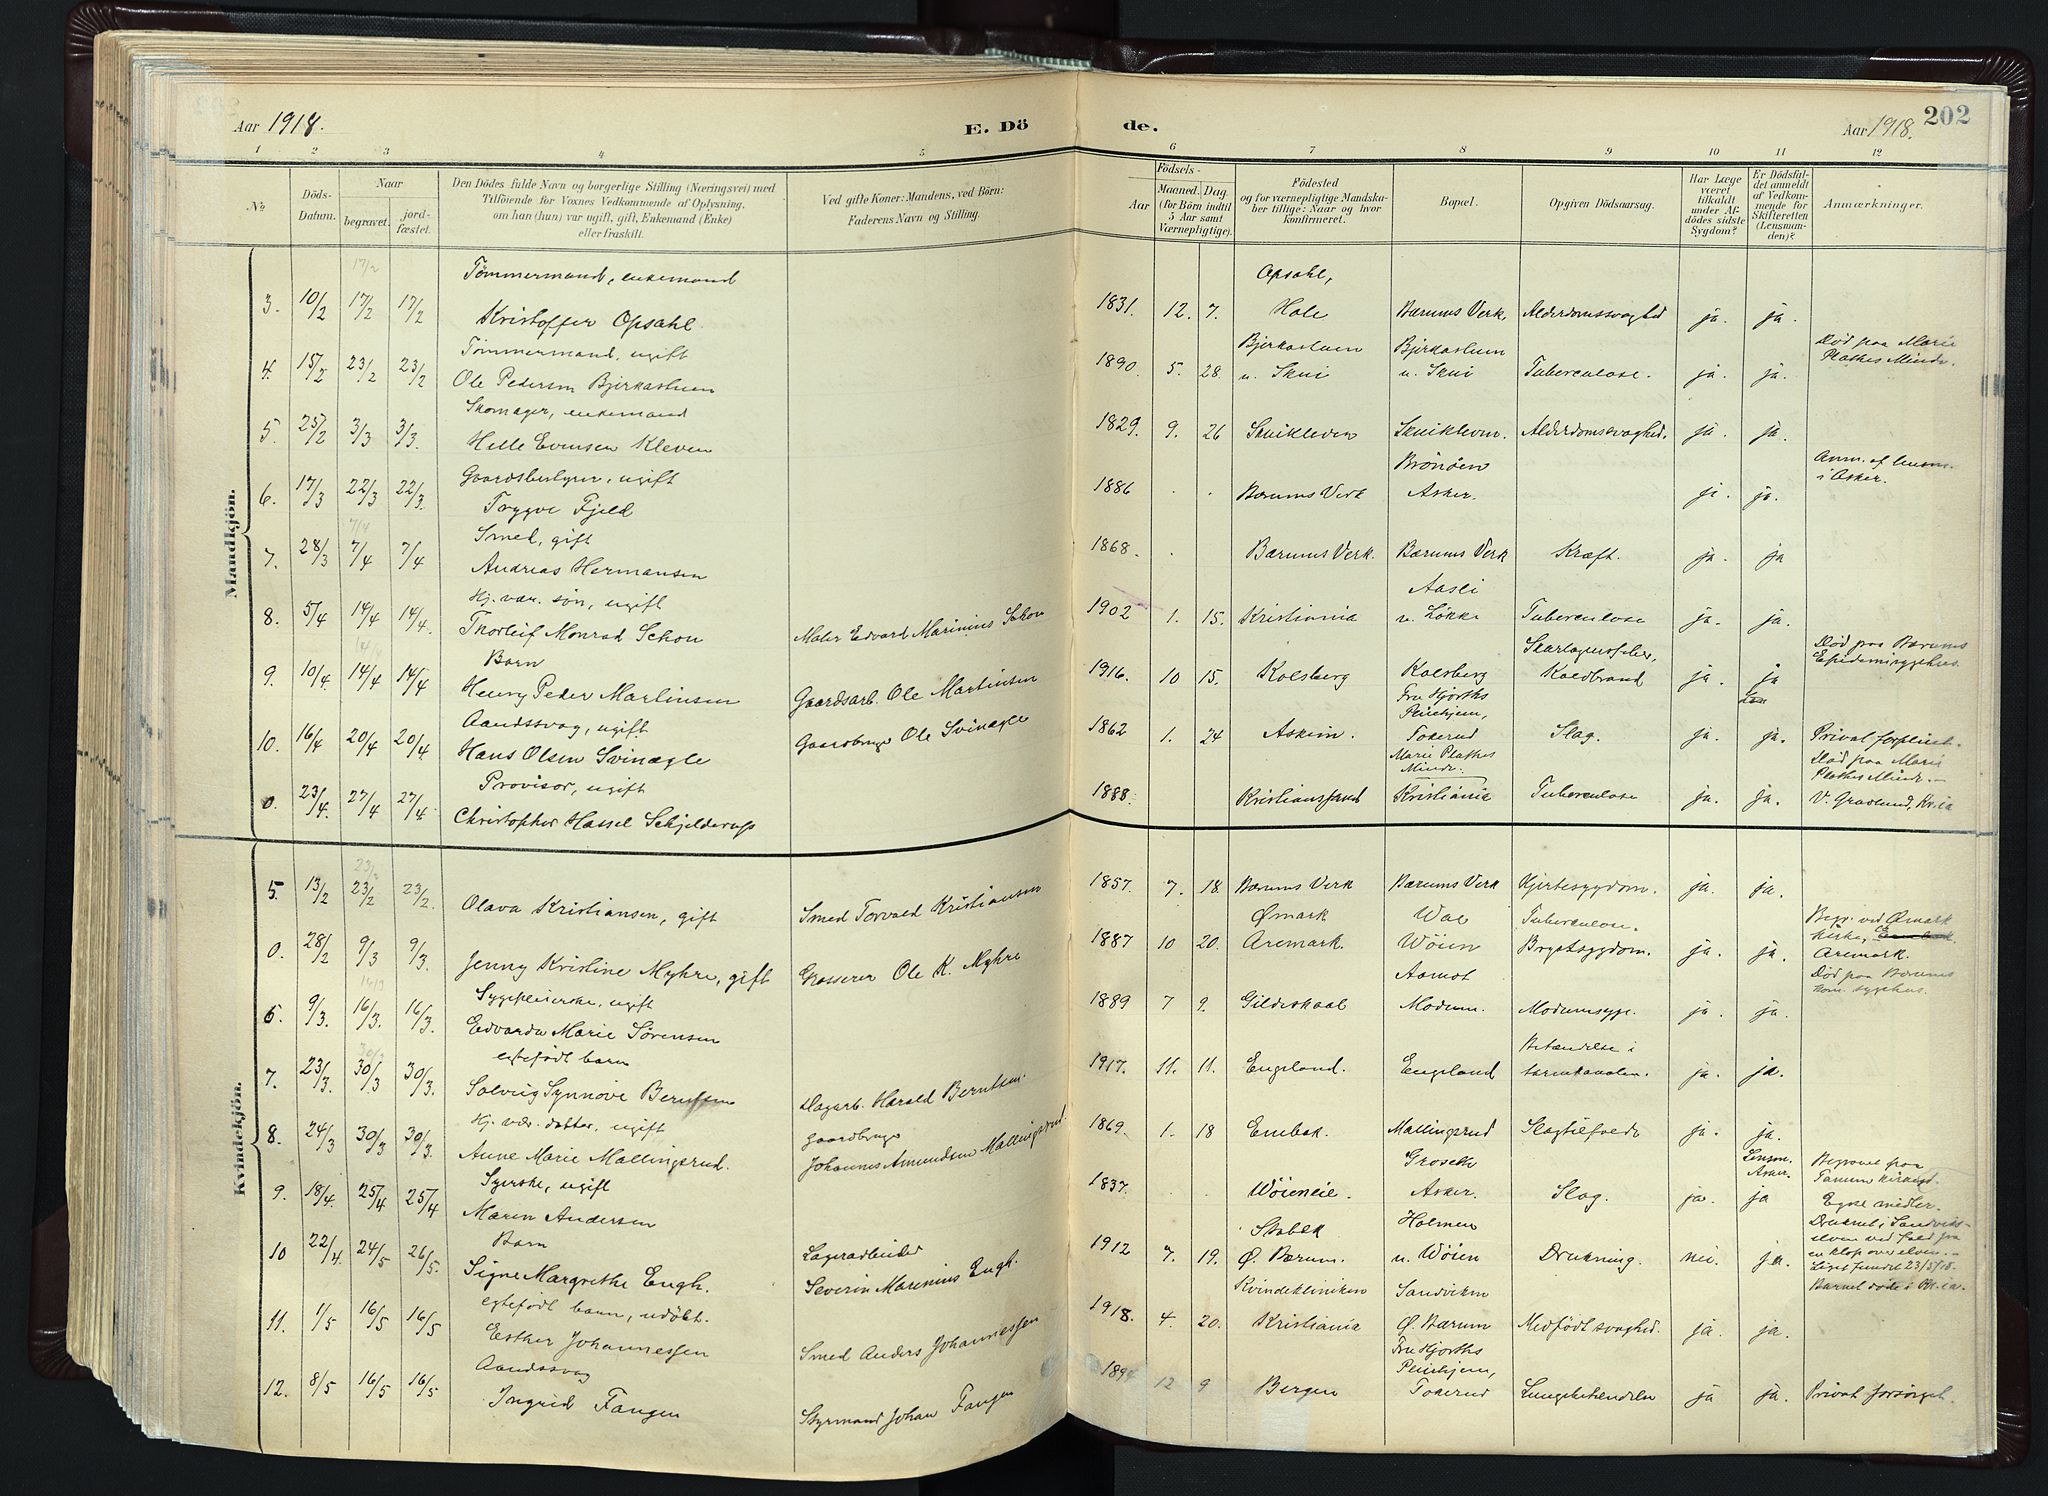 Aar 1918.
E. Dö
de.
Aar 1918.
202
1 2 3 4 5 6 7 8 9 10 11 12
No
Döds-
Datum.
Naar
begravet.
jord-
fæstet.
Den Dödes fulde Navn og borgerlige Stilling (Næringsvei) med
Tilföiende for Voxnes Vedkommende af Oplysning,
om han (hun) var ugift, gift, Enkemand (Enke)
eller fraskilt.
Ved gifte Koner: Mandens, ved Börn:
Faderens Navn og Stilling.
Födsels-
Aar
Maaned. Dag.
(for Börn indtil
5 Aar samt
Værnepligtige).
Födested
og for værnepligtige Mandska-
ber tillige: Naar og hvor
konfirmeret.
Bopæl.
Opgiven Dödsaarsag.
Har Læge
været
tilkaldt
under Af-
dödes sidste
Sygdom?
Er Dödsfal-
det anmeldt
af Vedkom-
mende for
Skifteretten
(Lensman-
den)?
Anmærkninger.
Mandkjön.
17/2
Tømmermand, enkemand
Opsahl,
3. 10/2 17/2 17/2 Kristoffer Opsahl. 1831. 12. 7. Hole Bærums Verk. Alderdomssvaghed ja. ja.
Tømmermand, ugift
Bjerkasluen Bjerkasluen
Død paa Marie
4. 15/2 23/2 23/2 Ole Pedersen Bjerkasluen 1890. 5. 28. u. Skui u. Skui Tuberculose. ja. ja. Plathes Minde.
Skomager, enkemand
5. 25/2 3/3 3/3. Helle Evensen Kleven 1829. 9. 26 Skuikleven Skuikleven. Alderdomssvaghed. ja. ja.
Gaardsbestyrer, ugift
Brönöen
Anm. af lensm.
6. 17/3 22/3 22/3. Trygve Fjeld 1886 . . Bærums Verk Asker. ja. ja. i Asker.
7/4
Smed, gift
7. 28/3 7/4 7/4 Andreas Hermansen 1868. . Bærums Verk. Bærums Verk Kræft. ja. ja
Hj. vær. søn, ugift
Aasli
8. 5/4 14/4 14/4. Thorleif Monrad Schou Maler Edvard Marinius Schou 1902 1. 15. Kristiania u. Løkke Tuberculose ja. ja.
14/4
Barn
Skarlagensfeber,
Død paa Bærums
Epidemisygehus.
9. 10/4. 14/4 14/4 Henry Peder Martinsen Gaardsarb. Ole Martinsen 1916. 10 15. Kolsberg Kolsberg Koldbrand ja. ja
Aandssvag, ugift
Fru Hjorths
Pleiehjem,
10. 16/4 20/4 20/4. Hans Olsen Svinægle Gaardbruger Ole Svinægle 1862 1. 24 Askim. Tokerud Slag. ja. ja. Privat forpleiet.
Provisor, ugift
Marie Plathes
Minde.
Død paa Marie
Plathes Minde.
0. 23/4. 27/4 27/4. Christopher Hassel Schjelderup 1888. Kristianssand Kristiania Tuberculose ja. ja. V. Gravlund, Kr.ia
Kvindekjön.
23/2
5. 13/2 23/2 23/2. Olava Kristiansen, gift Smed Torvald Kristiansen 1857. 7. 18. Bærums Verk Bærums Verk Hjertesygdom. ja. ja.
Ømark Wal Tuberculose.
Begr. ved Ømark
kirke,
0. 28/2 9/3 9/3. Jenny Kristine Myhre, gift Grosserer Ole K. Myhre 1887 10 20. Aremark. Wøien Brystsygdom. ja. ja. Aremark.
Sygepleierske, ugift
Aamot
Død paa Bærums
kom. sygehus.
6. 9/3. 16/3. 16/3. Edvarda Marie Sörensen 1889 7 9. Gildeskaal Modum. Modumsyge. ja. ja.
30/3
egtefødt barn
Betændelse i
7. 23/3. 30/3 30/3. Solveig Synnöve Berntsen Dagarb. Harald Berntsen. 1917. 11. 11. Engeland. Engeland tarmkanalen. ja. ja.
Hj. vær. datter, ugift
Gaardbruger
8. 24/3 30/3 30/3. Anne Marie Mallingsrud. Johannes Amundsen Mallingsrud. 1869. 1. 18 Enebak. Mallingsrud Slagtilfælde ja. ja.
Syerske, ugift
Groseth
Lensm.
Asker.
Begravet paa
Tanum kirkegd.
9. 18/4. 25/4 25/4 Maren Andersen 1837. . . Wöieneie. Asker. Slag. ja. ja
Barn
Lagerarbeider
Stabæk
Holmen
Egne midler.
Druknet i Sandviks-
elven ved fald fra
en klop over elven.
10 22/4. 24/5 26/5. Signe Margrethe Engh. Severin Marinius Engh. 1912 7. 19. Ø. Bærum. u. Wöien Drukning. nei. ja. Liget fundet 23/5/18.
egtefødt barn, udöbt.
Kvindekliniken Sandviken
Barnet døde i Kr.ia.
11. 1/5 16/5 16/5 Esther Johannessen Smed Anders Johannessen 1918. 4. 20. Kristiania Ø. Bærum Medfödt svaghed. ja. ja.
Aandssvag
Fru Hjorths
Pleiehjem,
12. 8/5 16/5 16/5 Ingrid Fangen Styrmand Johan Fangen 1894 12 9 Bergen Tokerud Lungebetændelse ja ja. Privat forsörget.